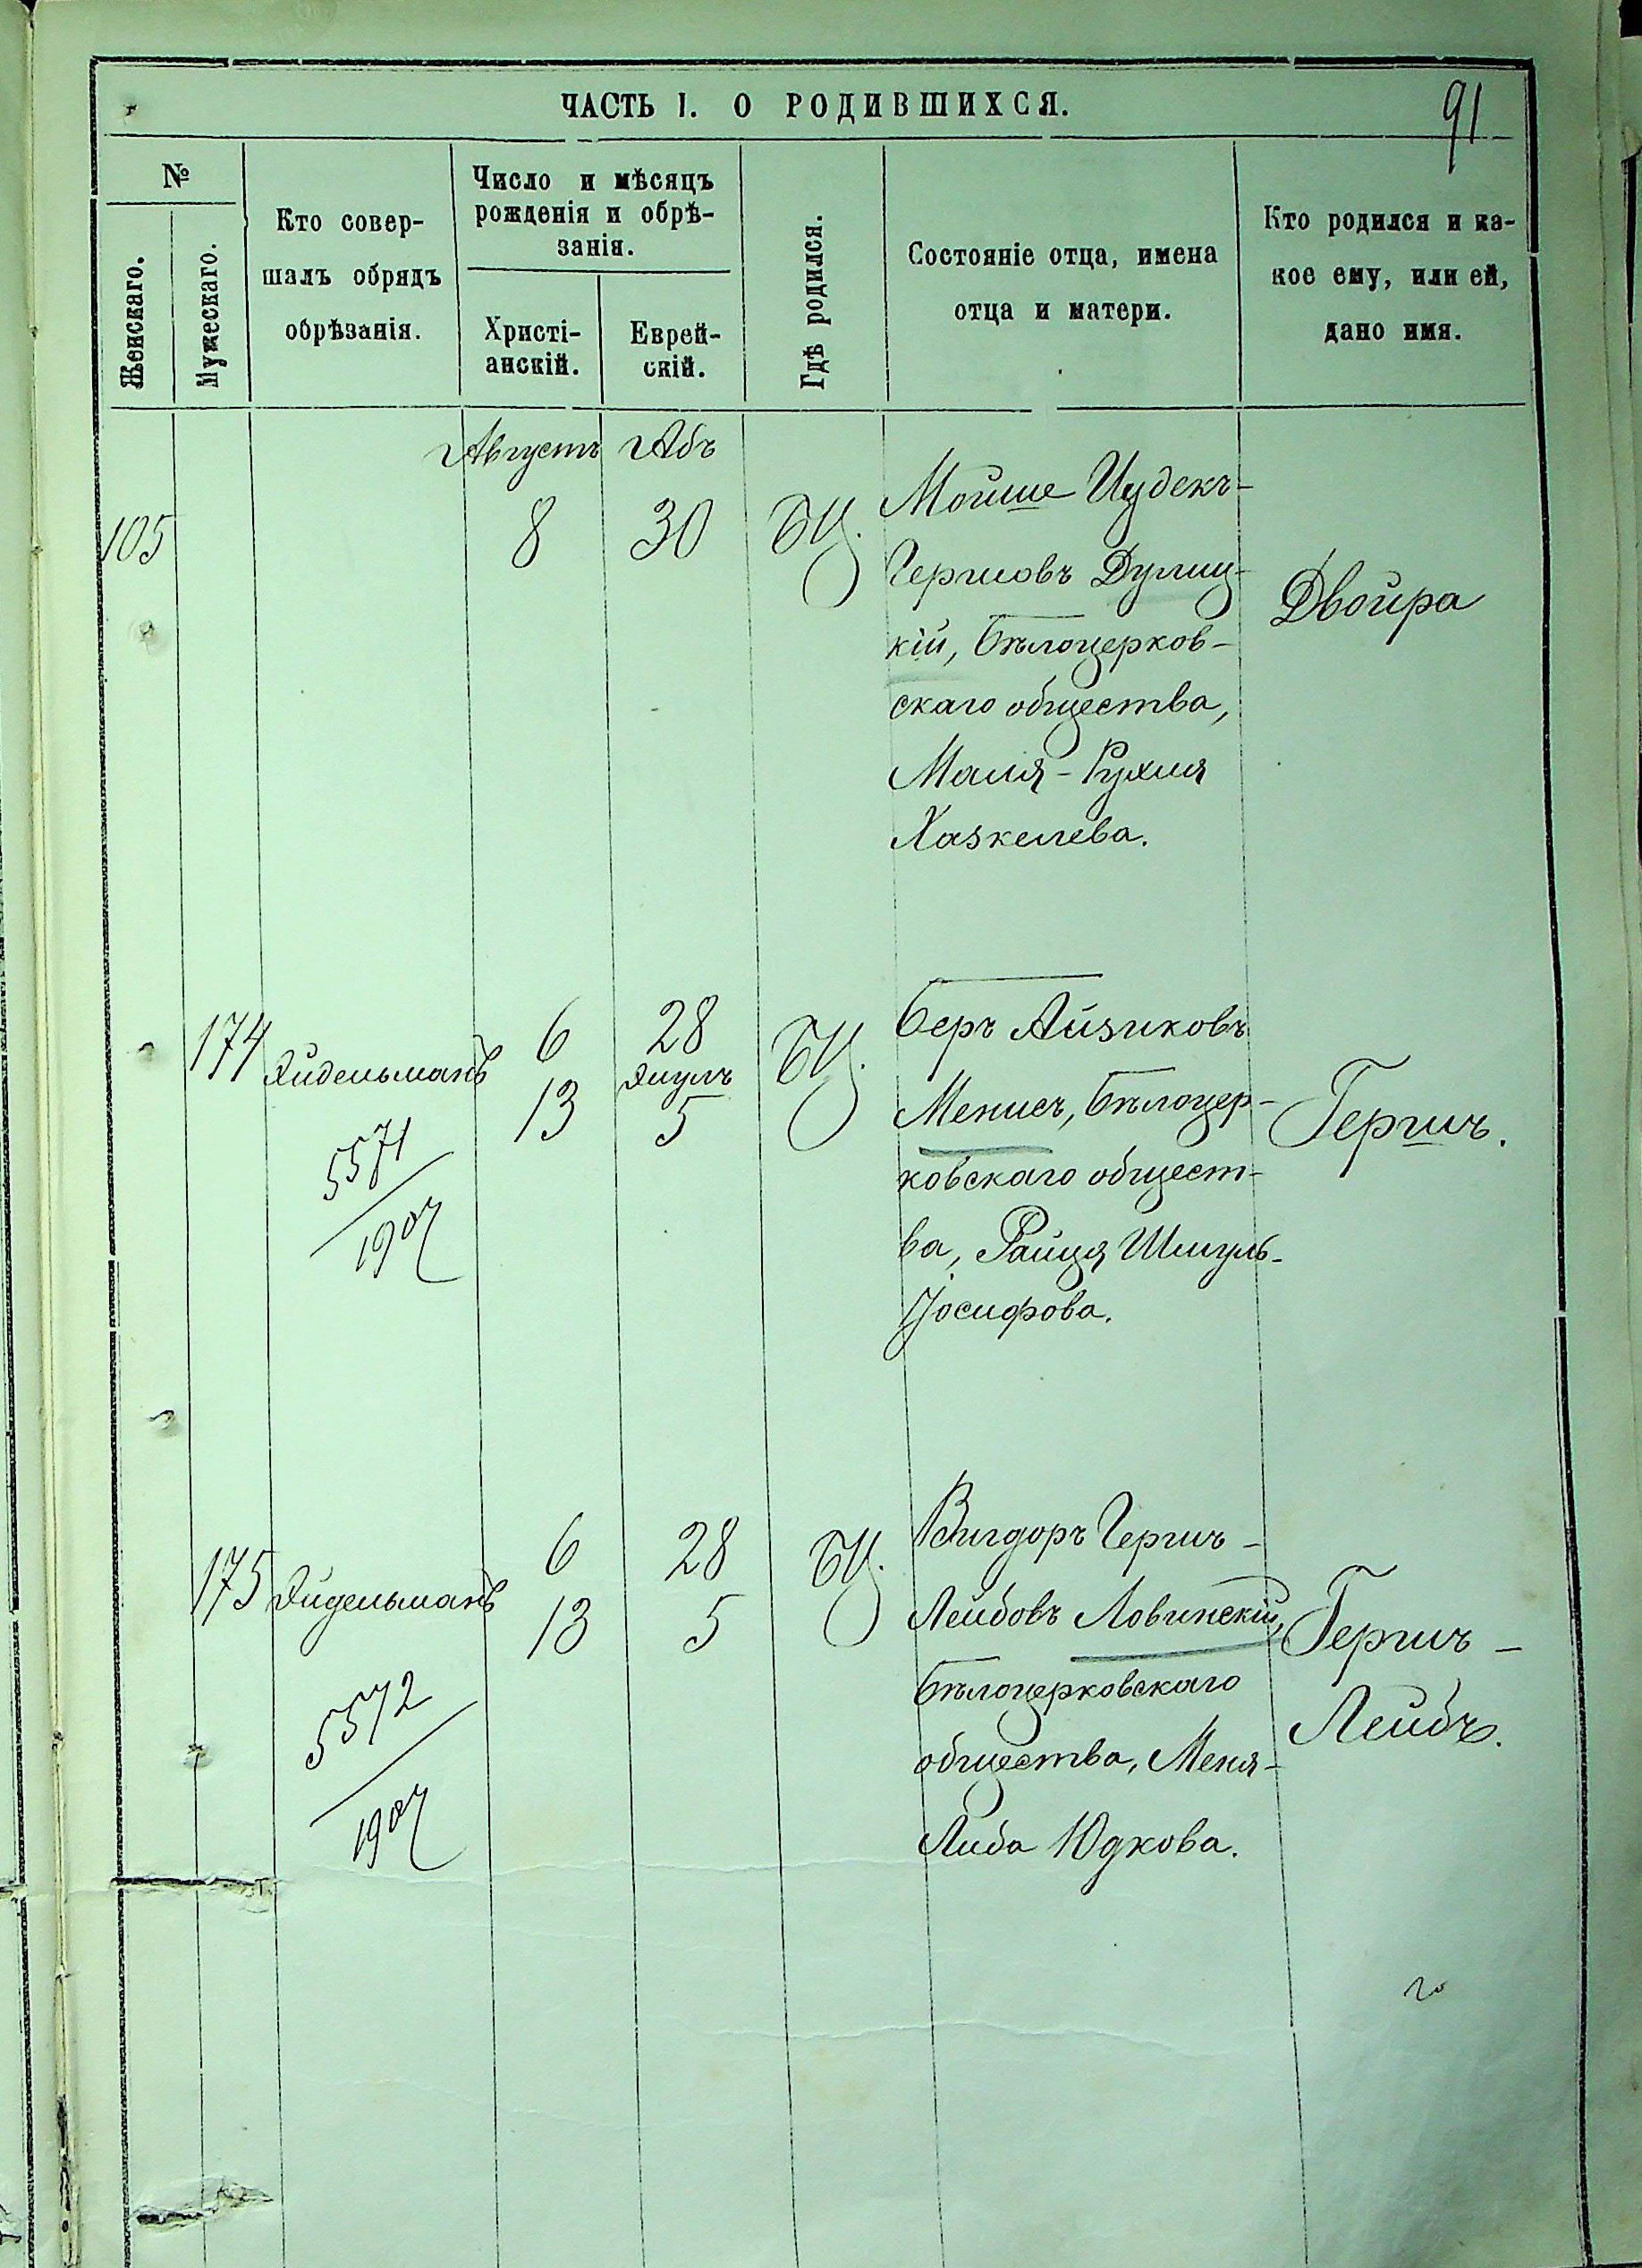 ЧАСТЬ I. О РОДИВШИХСЯ.
91
№
Женскаго.
Мужескаго.
Кто совер-
шалъ обрядъ
обрѣзанія.
Число и мѣсяцъ
рожденія и обрѣ-
занія.
Христі-
анскій.
Еврей-
скій.
Гдѣ родился.
Состояніе отца, имена
отца и матери.
Кто родился и ка-
кое ему, или ей,
дано имя.
Августъ Абъ
105 8 30 БЦ.
Мойше Иудекъ-
Гершовъ Дулиц-
кій, Бѣлоцерков-
скаго общества,
Маля-Рухля
Хаскелева.
Двойра
174 Эйдельманъ
5571
1907
6 28
Элулъ
13 5
БЦ.
Беръ Айзиковъ
Менисъ, Бѣлоцер-
ковскаго общест-
ва, Райця Шмуль-
Іосифова.
Гершъ.
175 Эйдельманъ
5572
1907
6 28
13 5
БЦ.
Вигдоръ Гершъ-
Лейбовъ Ловинскій,
Бѣлоцерковскаго
общества, Меня-
Либа Юдкова.
Гершъ-
Лейбъ.